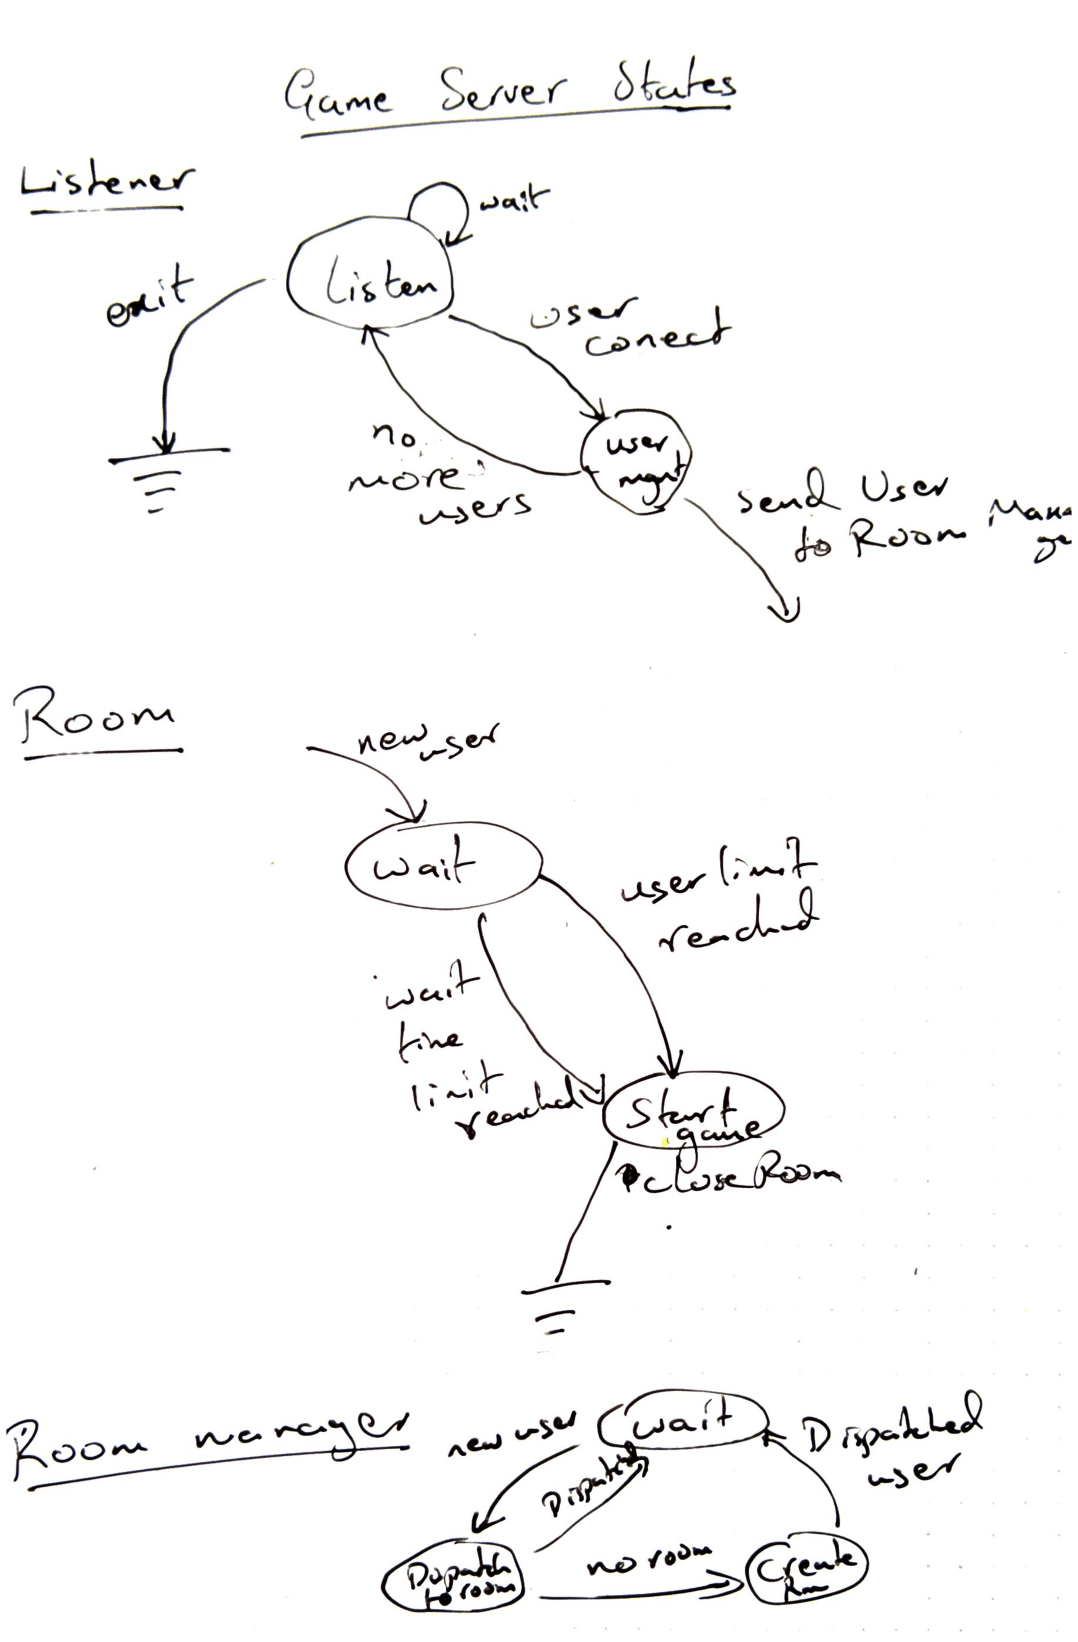 Game Server States
Listener
wait
Listen
exit
user
conect
no
more
users
user
mgnt
Send User
to Room Mana
ge
Room
new
user
wait
user limit
reached
wait
time
limit
reached
Start
game
close Room
Room manager
new user
wait
Dispatched
user
Dispatched
Dispatch
to room
no room
Create
Rm